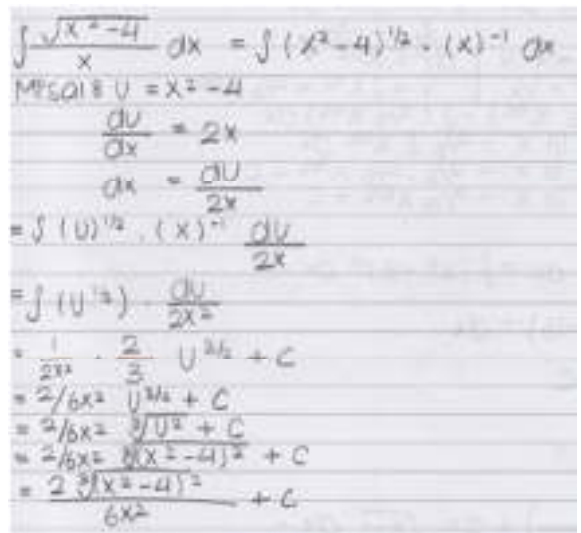 ∫ √(x²-4) / x dx = ∫ (x²-4)^1/2 · (x)^-1 dx
MISAL U = x²-4
du/dx = 2x
dx = du/2x
= ∫ (U)^1/2 · (x)^-1 du/2x
= ∫ (U^1/2) · du/2x²
= 1/2x² · 2/3 U^3/2 + C
= 2/6x² U^3/2 + C
= 2/6x² ∛U² + C
= 2/6x² ∛(x²-4)² + C
= 2 ∛(x²-4)² / 6x² + C